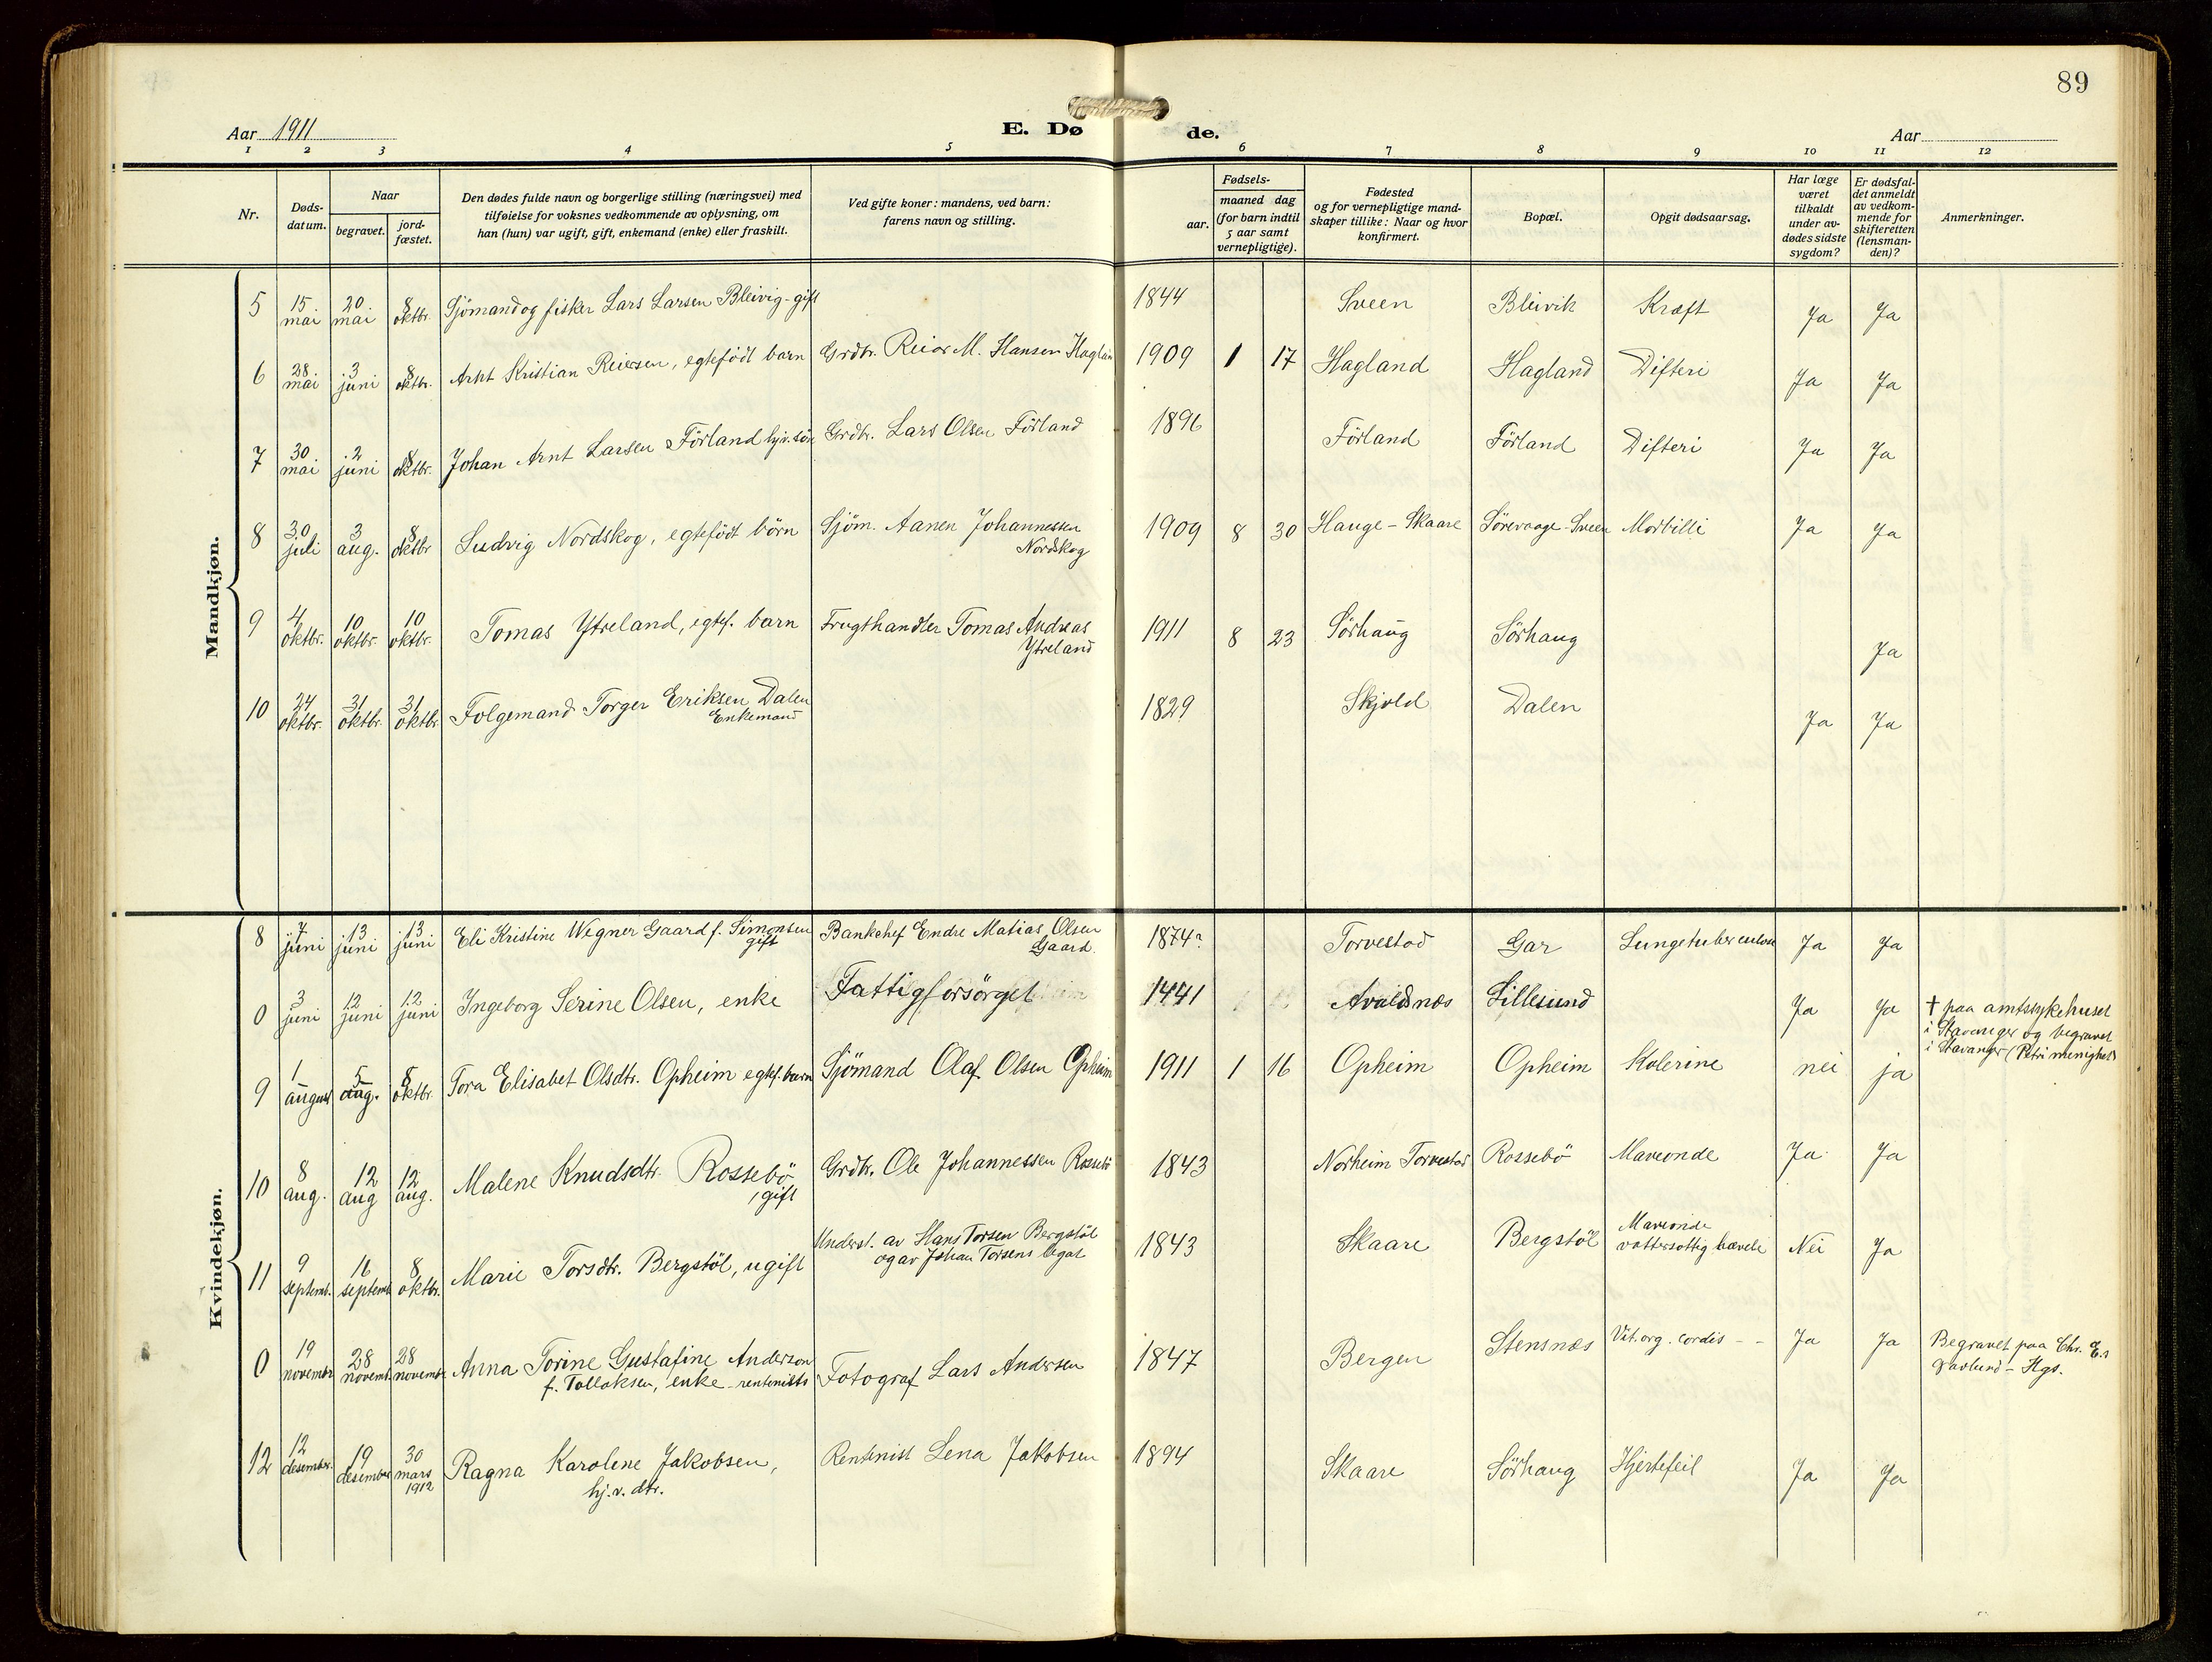 89
Aar 1911
E. Dø de.
Aar
1 2 3 4 5 6 7 8 9 10 11 12
Nr.
Døds-datum.
Naar
begravet.
jord-fæstet.
Den dødes fulde navn og borgerlige stilling (næringsvei) med
tilføielse for voksnes vedkommende av oplysning, om
han (hun) var ugift, gift, enkemand (enke) eller fraskilt.
Ved gifte koner: mandens, ved barn:
farens navn og stilling.
Fødsels-
aar.
maaned dag
(for barn indtil
5 aar samt
vernepligtige).
Fødested
og for vernepligtige mand-
skaper tillike: Naar og hvor
konfirmert.
Bopæl.
Opgit dødsaarsag.
Har læge
været
tilkaldt
under av-
dødes sidste
sygdom?
Er dødsfal-
det anmeldt
av vedkom-
mende for
skifteretten
(lensman-
den)?
Anmerkninger.
Mandkjøn.
5 15 mai 20 mai 8 oktbr. Sjömand og fisker Lars Larsen Bleivig - gift 1844 Sveen Bleivik Kræft Ja Ja
6 28 mai 3 juni 8 oktbr. Arnt Kristian Reiersen, egtefödt barn Grdbr. Reior M. Hansen Haglan 1909 1 17 Hagland Hagland Difteri Ja Ja
7 30 mai 2 juni 8 oktbr. Johan Arnt Larsen Förland hjv. sön Grdbr. Lars Olsen Förland 1896 Förland Förland Difteri Ja Ja
8 30 juli 3 aug. 8 oktbr Ludvig Nordskog, egtefödt börn Sjöm. Aanen Johannessen
Nordskog 1909 8 30 Hauge - Skaare Sörevaage - Sveen Morbilli Ja Ja
9 4 oktbr. 10 oktbr. 10 oktbr. Tomas Ytreland, egtef. barn Frugthandler Tomas Andreas
Ytreland 1911 8 23 Sörhaug Sörhaug Ja
10 24 oktbr. 31 oktbr. 31 oktbr. Folgemand Torger Eriksen Dalen
Enkemand 1829 Skjold Dalen Ja Ja
Kvindekjøn.
8 7 juni 13 juni 13 juni Eli Kristine Wegner Gaard f. Simonsen
gift Bankchef Endre Matias Olsen
Gaard. 1874? Torvestad Gar Lungetuberculose Ja Ja
0 3 juni 12 juni 12 juni Ingeborg Serine Olsen, enke Fattigforsörget 1441 Avaldsnes Lillesund Ja Ja † paa amtssykehuset
i Stavanger og begravet
i Stavanger (Petri menighet)
9 1 august 5 aug. 8 oktbr. Tora Elisabet Olsdtr. Opheim egtef. barn Sjömand Olaf Olsen Opheim 1911 1 16 Opheim Opheim Kolerine nei ja
10 8 aug. 12 aug 12 aug. Malene Knudsdtr. Rossebö
, gift Grdbr. Ole Johannessen Rossebö 1843 Norheim Torvestad Rossebö Maveonde Ja Ja
11 9 septemb. 16 septemb 8 oktbr. Marie Torsdtr. Bergstöl, ugift Underst. av Hans Torsen Bergstöl
og av Johan Torsens legat 1843 Skaare Bergstöl Maveonde
vattersottig hævele Nei Ja
0 19 novembr 28 novemb. 28 novembr. Anna Torine Gustafine Anderson
f. Tollaksen, enke - rentenists Fotograf Lars Andersen 1847 Bergen Stensnæs Vit. org. cordis - - Ja Ja Begravet paa Chr. E.s
Gavlund - Hgs.
12 12 desember. 19 desember 30 mars 1912 Ragna Karolene Jakobsen,
hj.v. dtr. Rentenist Lena Jakobsen 1894 Skaare Sörhaug Hjertefeil Ja Ja